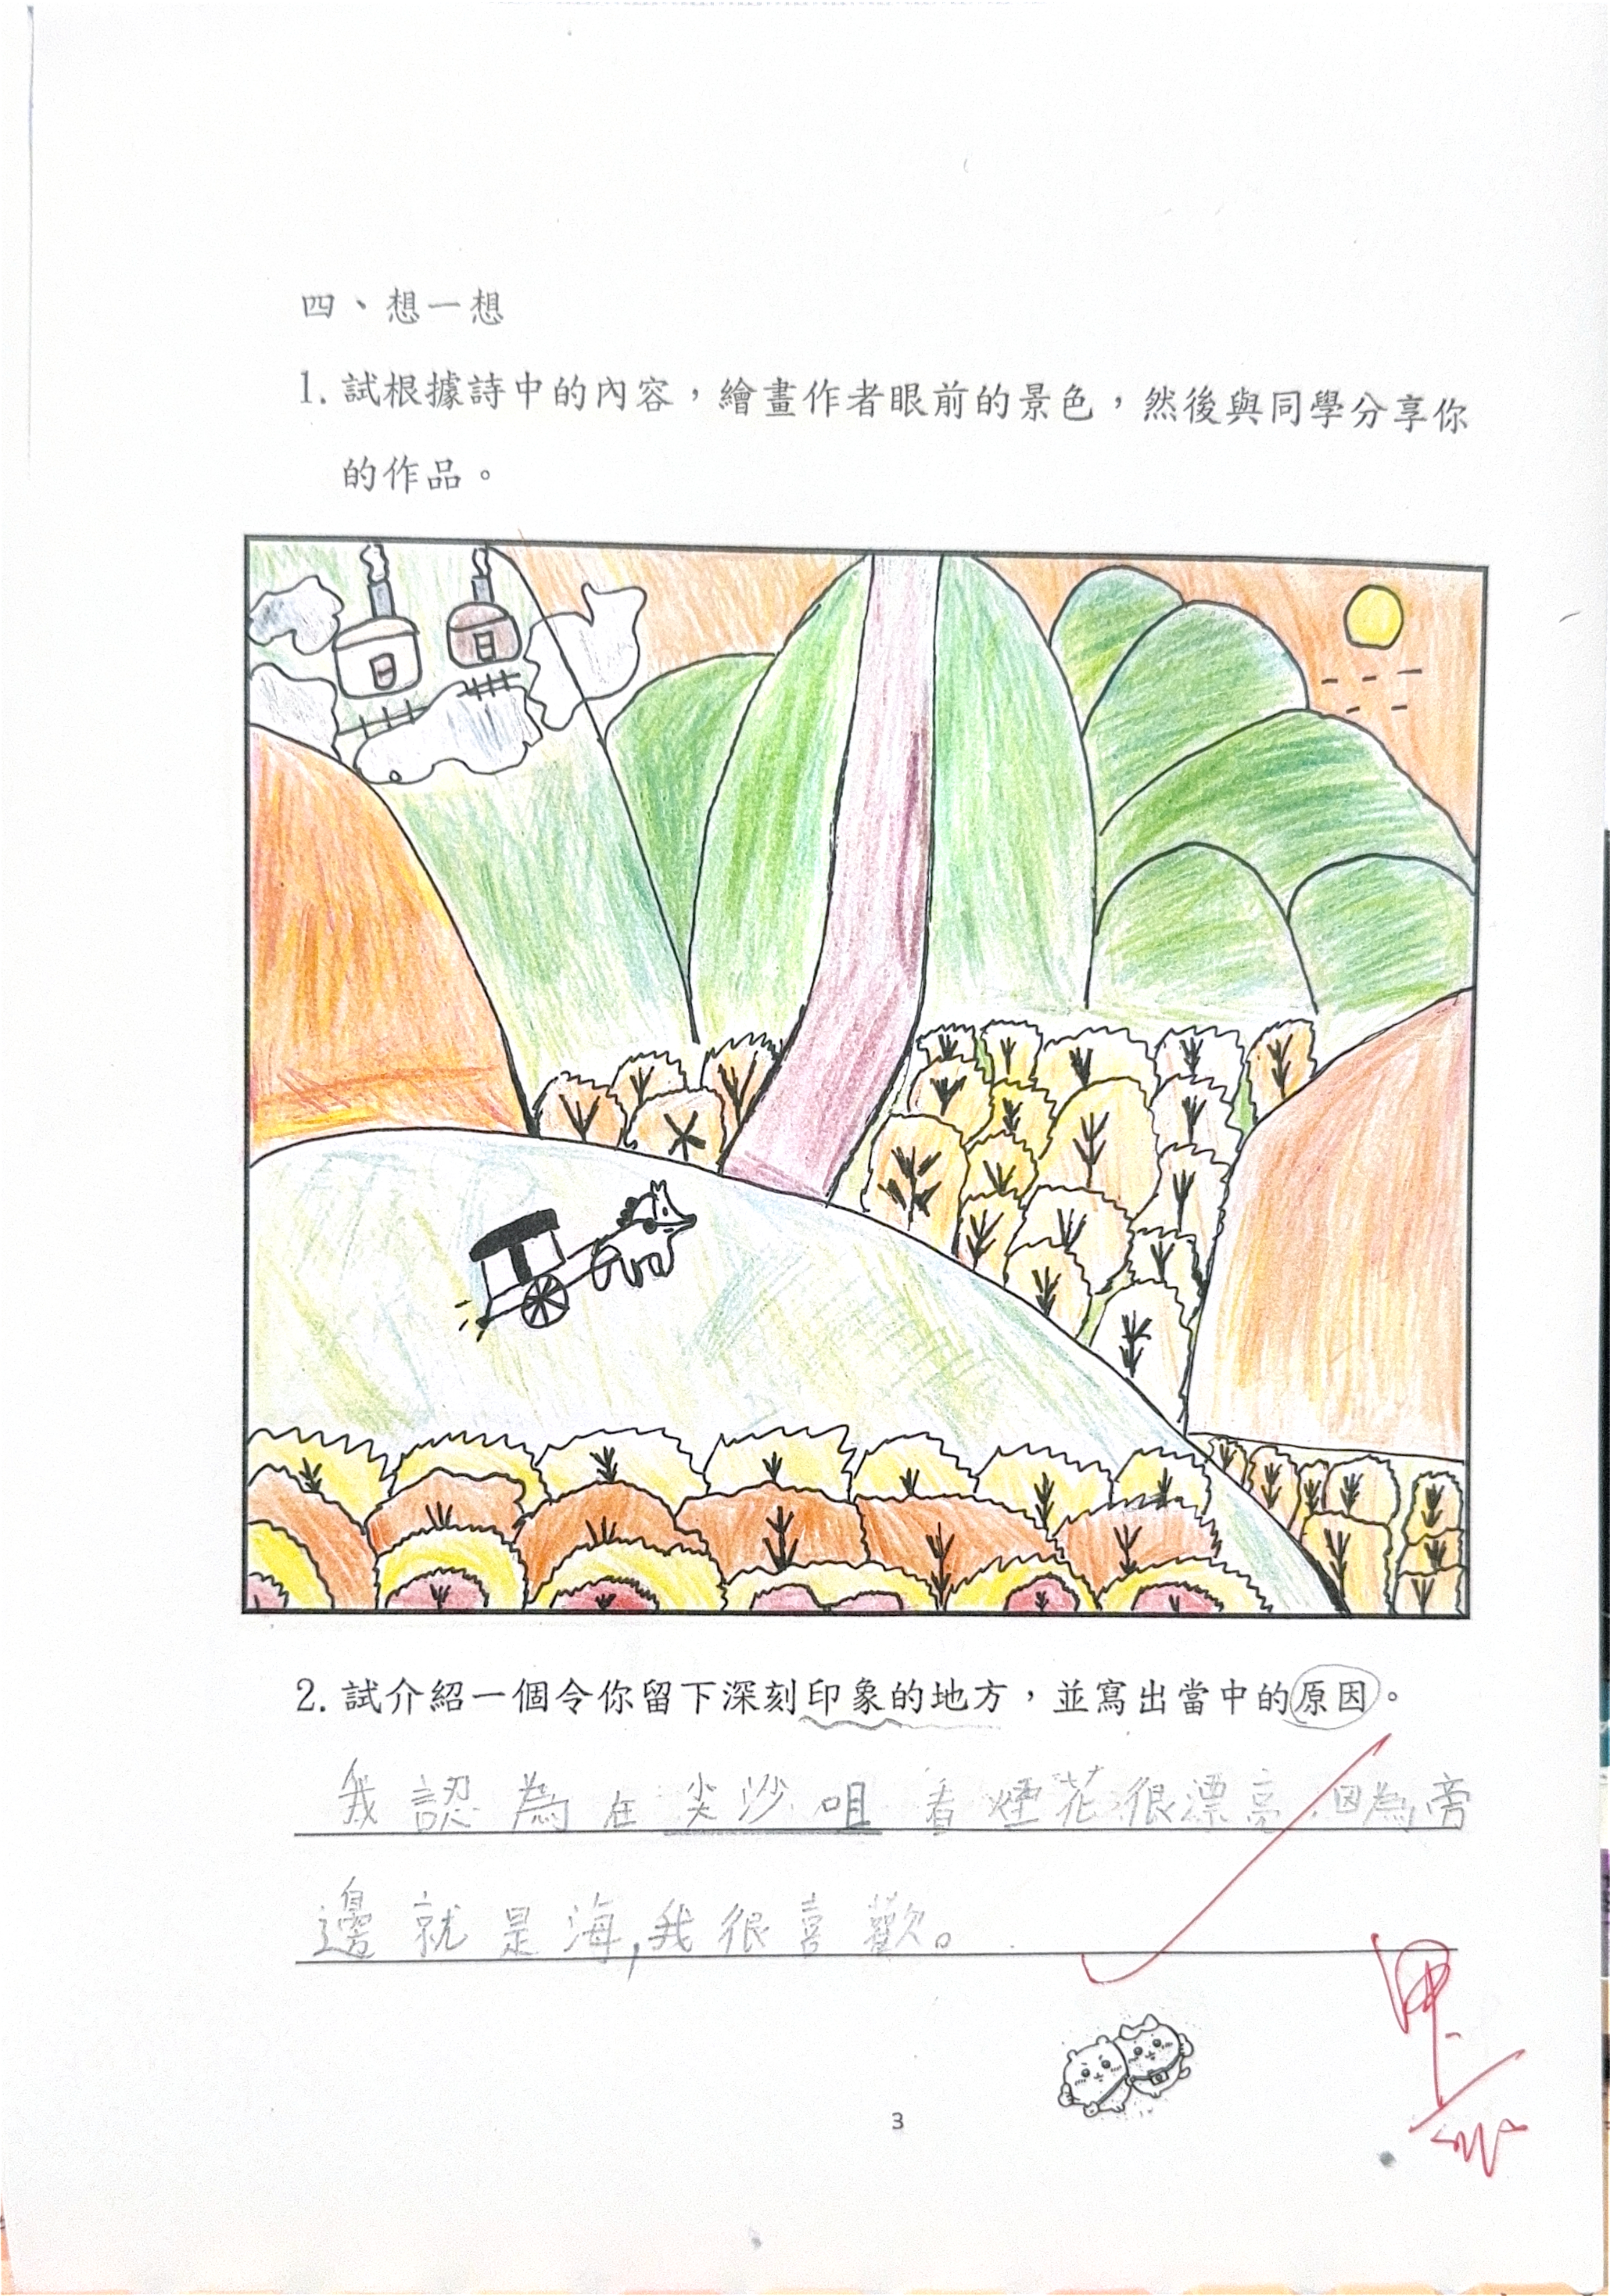 四、想一想
1. 試根據詩中的內容，繪畫作者眼前的景色，然後與同學分享你
的作品。
2. 試介紹一個令你留下深刻印象的地方，並寫出當中的原因。
我認為在尖沙咀看煙花很漂亮,因為旁
邊就是海,我很喜歡。
甲
3